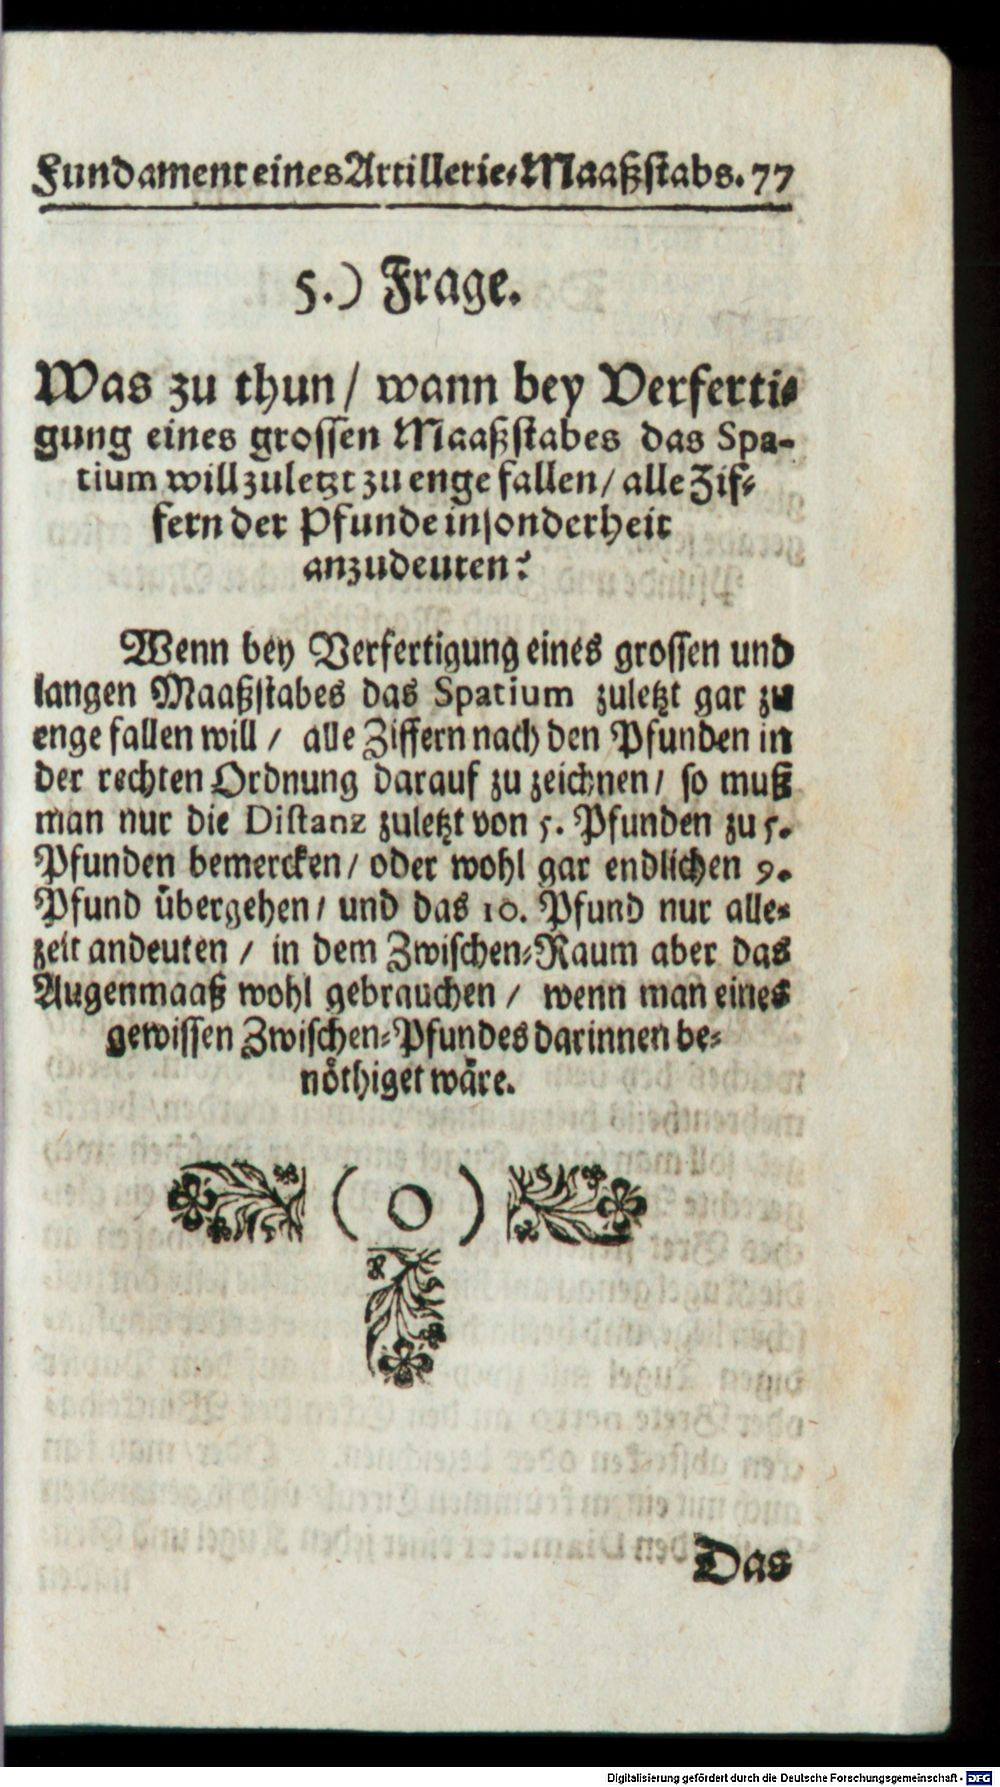 Fundament eines Artillerie-Maaßstabs. 77
5.) Frage.
Was zu thun / wann bey Verferti-
gung eines grossen Maaßstabes das Spa-
tium will zuletzt zu enge fallen / alle Zif-
fern der Pfunde insonderheit
anzudeuten?
Wenn bey Verfertigung eines grossen und
langen Maaßstabes das Spatium zuletzt gar zu
enge fallen will / alle Ziffern nach den Pfunden in
der rechten Ordnung darauf zu zeichnen / so muß
man nur die Distanz zuletzt von 5. Pfunden zu 5.
Pfunden bemercken / oder wohl gar endlichen 9.
Pfund übergehen / und das 10. Pfund nur alle-
zeit andeuten / in dem Zwischen-Raum aber das
Augenmaaß wohl gebrauchen / wenn man eines
gewissen Zwischen-Pfundes darinnen be-
nöthiget wäre.
( O )
Das
Digitalisierung gefördert durch die Deutsche Forschungsgemeinschaft - DFG